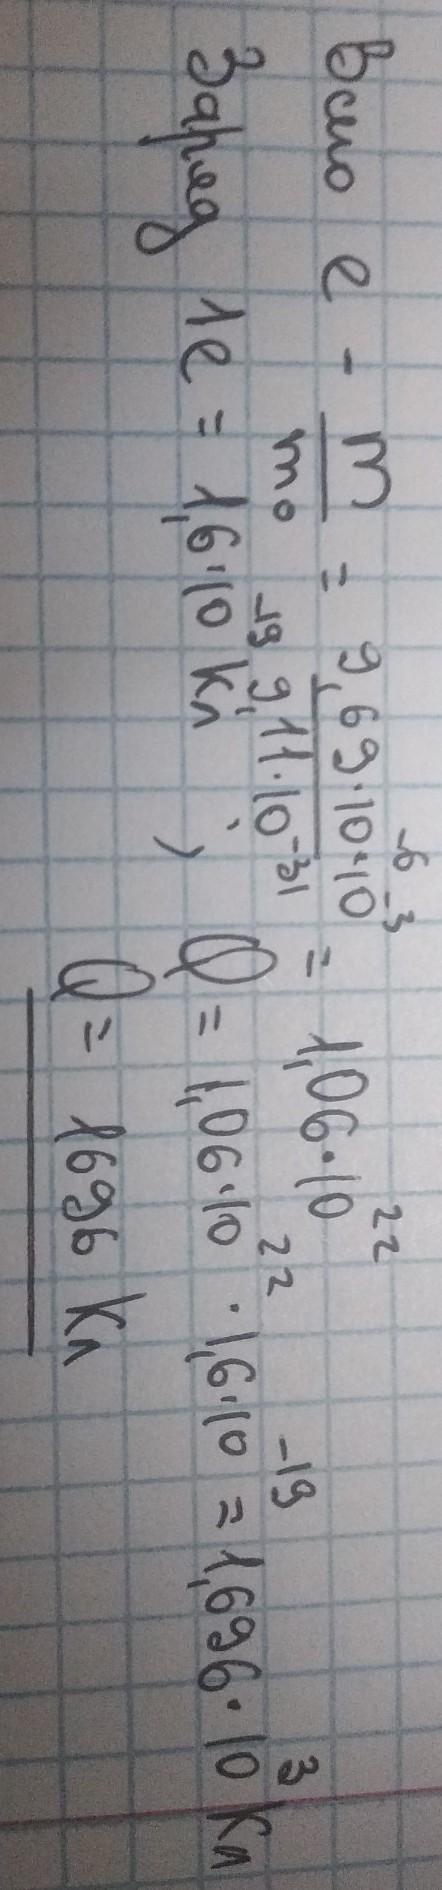 Всего e - m/m₀ = 9,69·10⁻⁶·10⁻³/9,11·10⁻³¹ = 1,06·10²²
Заряд 1e = 1,6·10⁻¹⁹ Кл ; Q = 1,06·10²² · 1,6·10⁻¹⁹ = 1,696·10³ Кл
Q = 1696 Кл